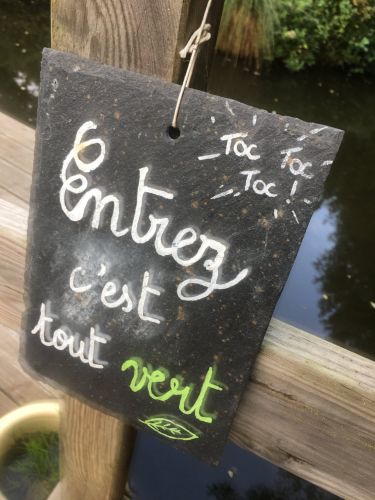 Toc Toc
Toc !
Entrez
c'est
tout vert